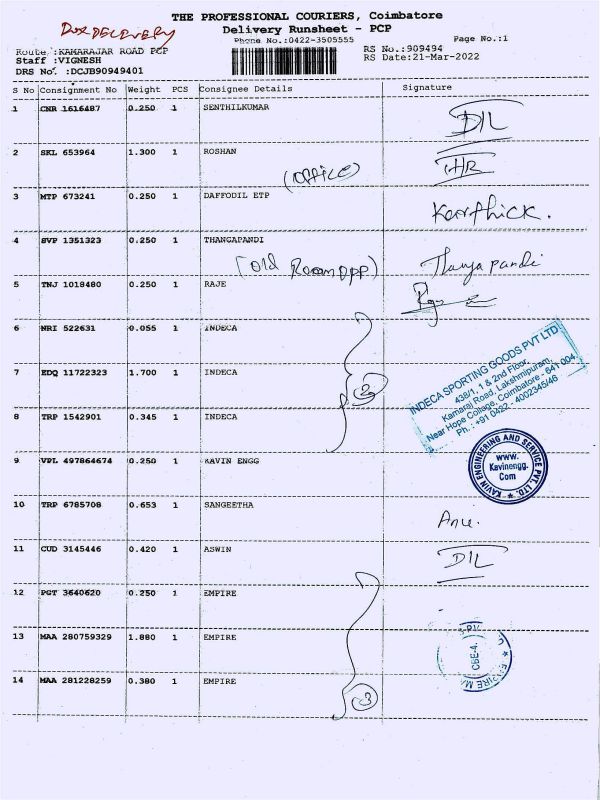 THE PROFESSIONAL COURIERS, Coimbatore
Delivery Runsheet - PCP
Phone No.:0422-3505555
Page No.:1
DOX DELIVERY
Route :KAMARAJAR ROAD PCP
Staff :VIGNESH
DRS No. :DCJB90949401
RS No.:909494
RS Date:21-Mar-2022
S No Consignment No Weight PCS Consignee Details Signature
1 CNR 1616487 0.250 1 SENTHILKUMAR DIL
2 SKL 653964 1.300 1 ROSHAN
(OFFICE)
3 MTP 673241 0.250 1 DAFFODIL ETP Karthick.
4 SVP 1351323 0.250 1 THANGAPANDI
(old Room opp)
5 TNJ 1018480 0.250 1 RAJE
6 NRI 522631 0.055 1 INDECA
7 EDQ 11722323 1.700 1 INDECA
8 TRP 1542901 0.345 1 INDECA
INDECA SPORTING GOODS PVT LTD
438/1, 1 & 2nd Floor,
Kamaraj Road, Lakshmipuram,
Near Hope College, Coimbatore - 641 004.
Ph.: +91 0422 - 4002345/46
9 VPL 497864674 0.250 1 KAVIN ENGG
KAVIN ENGINEERING AND SERVICE PVT. LTD.
www.
Kavinengg.
Com
10 TRP 6785708 0.653 1 SANGEETHA Anu.
11 CUD 3145446 0.420 1 ASWIN DIL
12 PGT 3640620 0.250 1 EMPIRE
13 MAA 280759329 1.880 1 EMPIRE
CBE-4.
14 MAA 281228259 0.380 1 EMPIRE
3